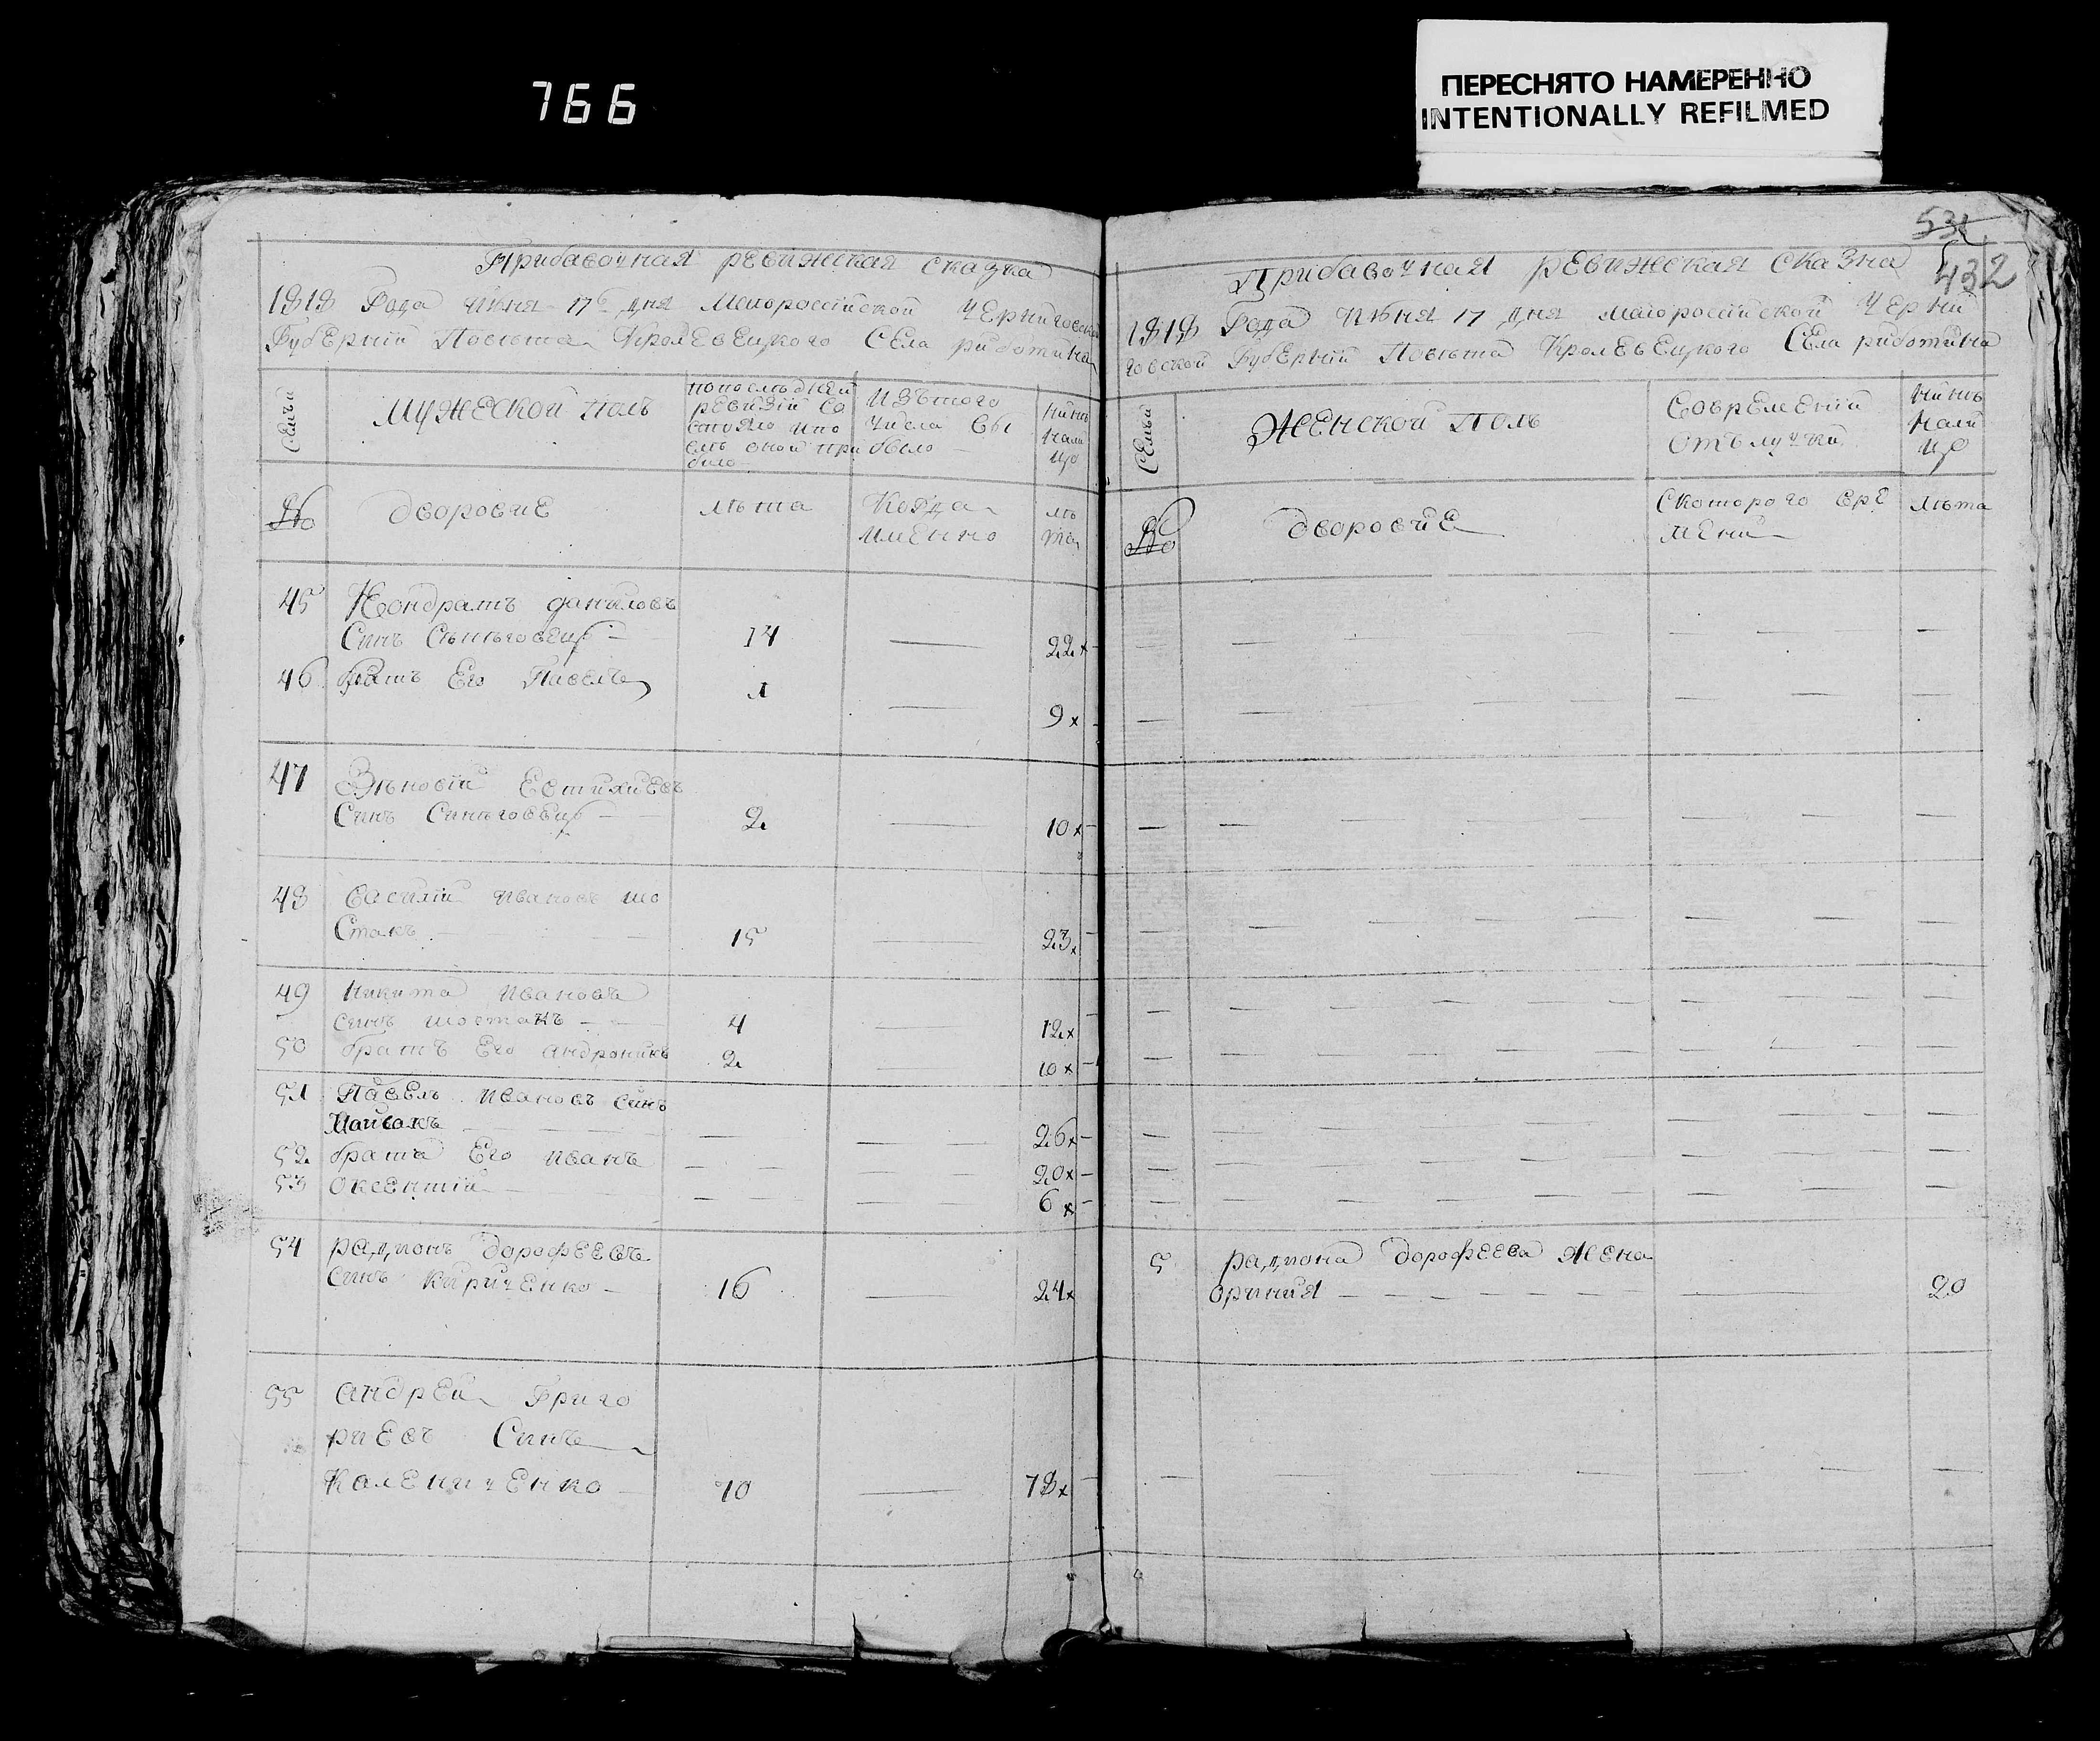 766
ПЕРЕСНЯТО НАМЕРЕННО
INTENTIONALLY REFILMED
Прибавочная ревижская сказка
1818 Года июня 17го дня Малороссійской Черниговской
Губерніи Повѣта Кролевецкого Села риботина
Семьи
Мужеской полъ
попослѣдней
ревизіи со
стояло ипо
слѣ оной при
било
изътого
числа вы
было
нинѣ
нали
цо
№
дворовие
лѣта
Когда
именно
лѣ
та
45 Кондратъ даниловъ
Синъ Сѣнѣговецъ 14 — 22 x
46 братъ Его Павелъ 1 — 9 x
47 Зѣновій Естихиевъ
Синъ Синѣговецъ 2 — 10 x
48 василій ивановъ шо
Стакъ 15 — 23 x
49 Никита ивановъ
синъ шостакъ 4 — 12 x
50 братъ Его андроникъ 2 — 10 x
51 Павелъ ивановъ синъ
26 x
52 брата Его иванъ 20 x
53 оксентій 6 x
54 радионъ дорофеевъ
синъ Кириченко 16 — 24 x
55 андрей Григо
риевъ Синъ
Калениченко 70 — 78 x
531
432
Прибавочная ревижская сказка
1818 Года июня 17 дня малоросійской Черни
говской Губерніи Повѣта Кролевецкого Села риботина
Семьи
Женской полъ
Современий
отълучки
нинѣ
нали
цо
№
дворовие
скоторого вре
мени
лѣта
5 радиона дорофеева жена
ориния — 20